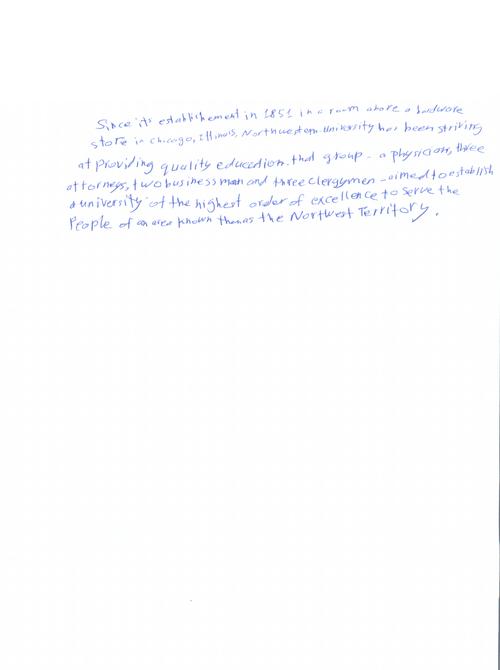 Since its establishement in 1851 in a room above a hardware
store in Chicago, Illinois, Northwestern University has been striving
at providing quality education. that group - a physician, three
attorneys, two business man and three clergymen - aimed to establish
a university of the highest order of excellence to serve the
People of an area known then as the Northwest Territory.